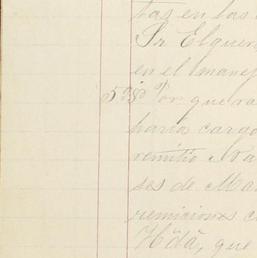 tas en las
Sr Elguer
en el manej
5o 8o Por que ra
haria cargo
remitió
ses de Ma
remisiones
Hdã, que